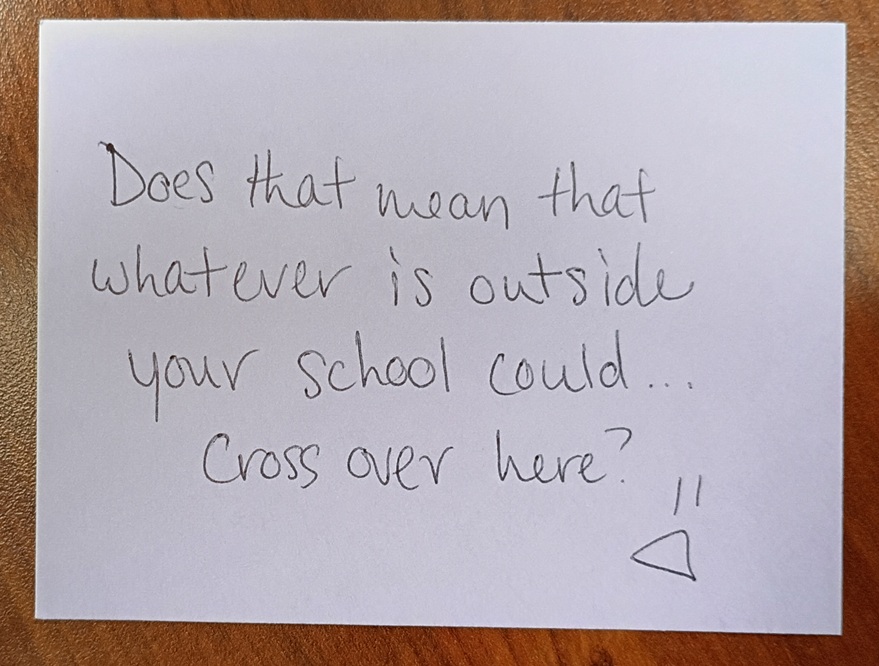 Does that mean that
whatever is outside
your school could...
Cross over here?